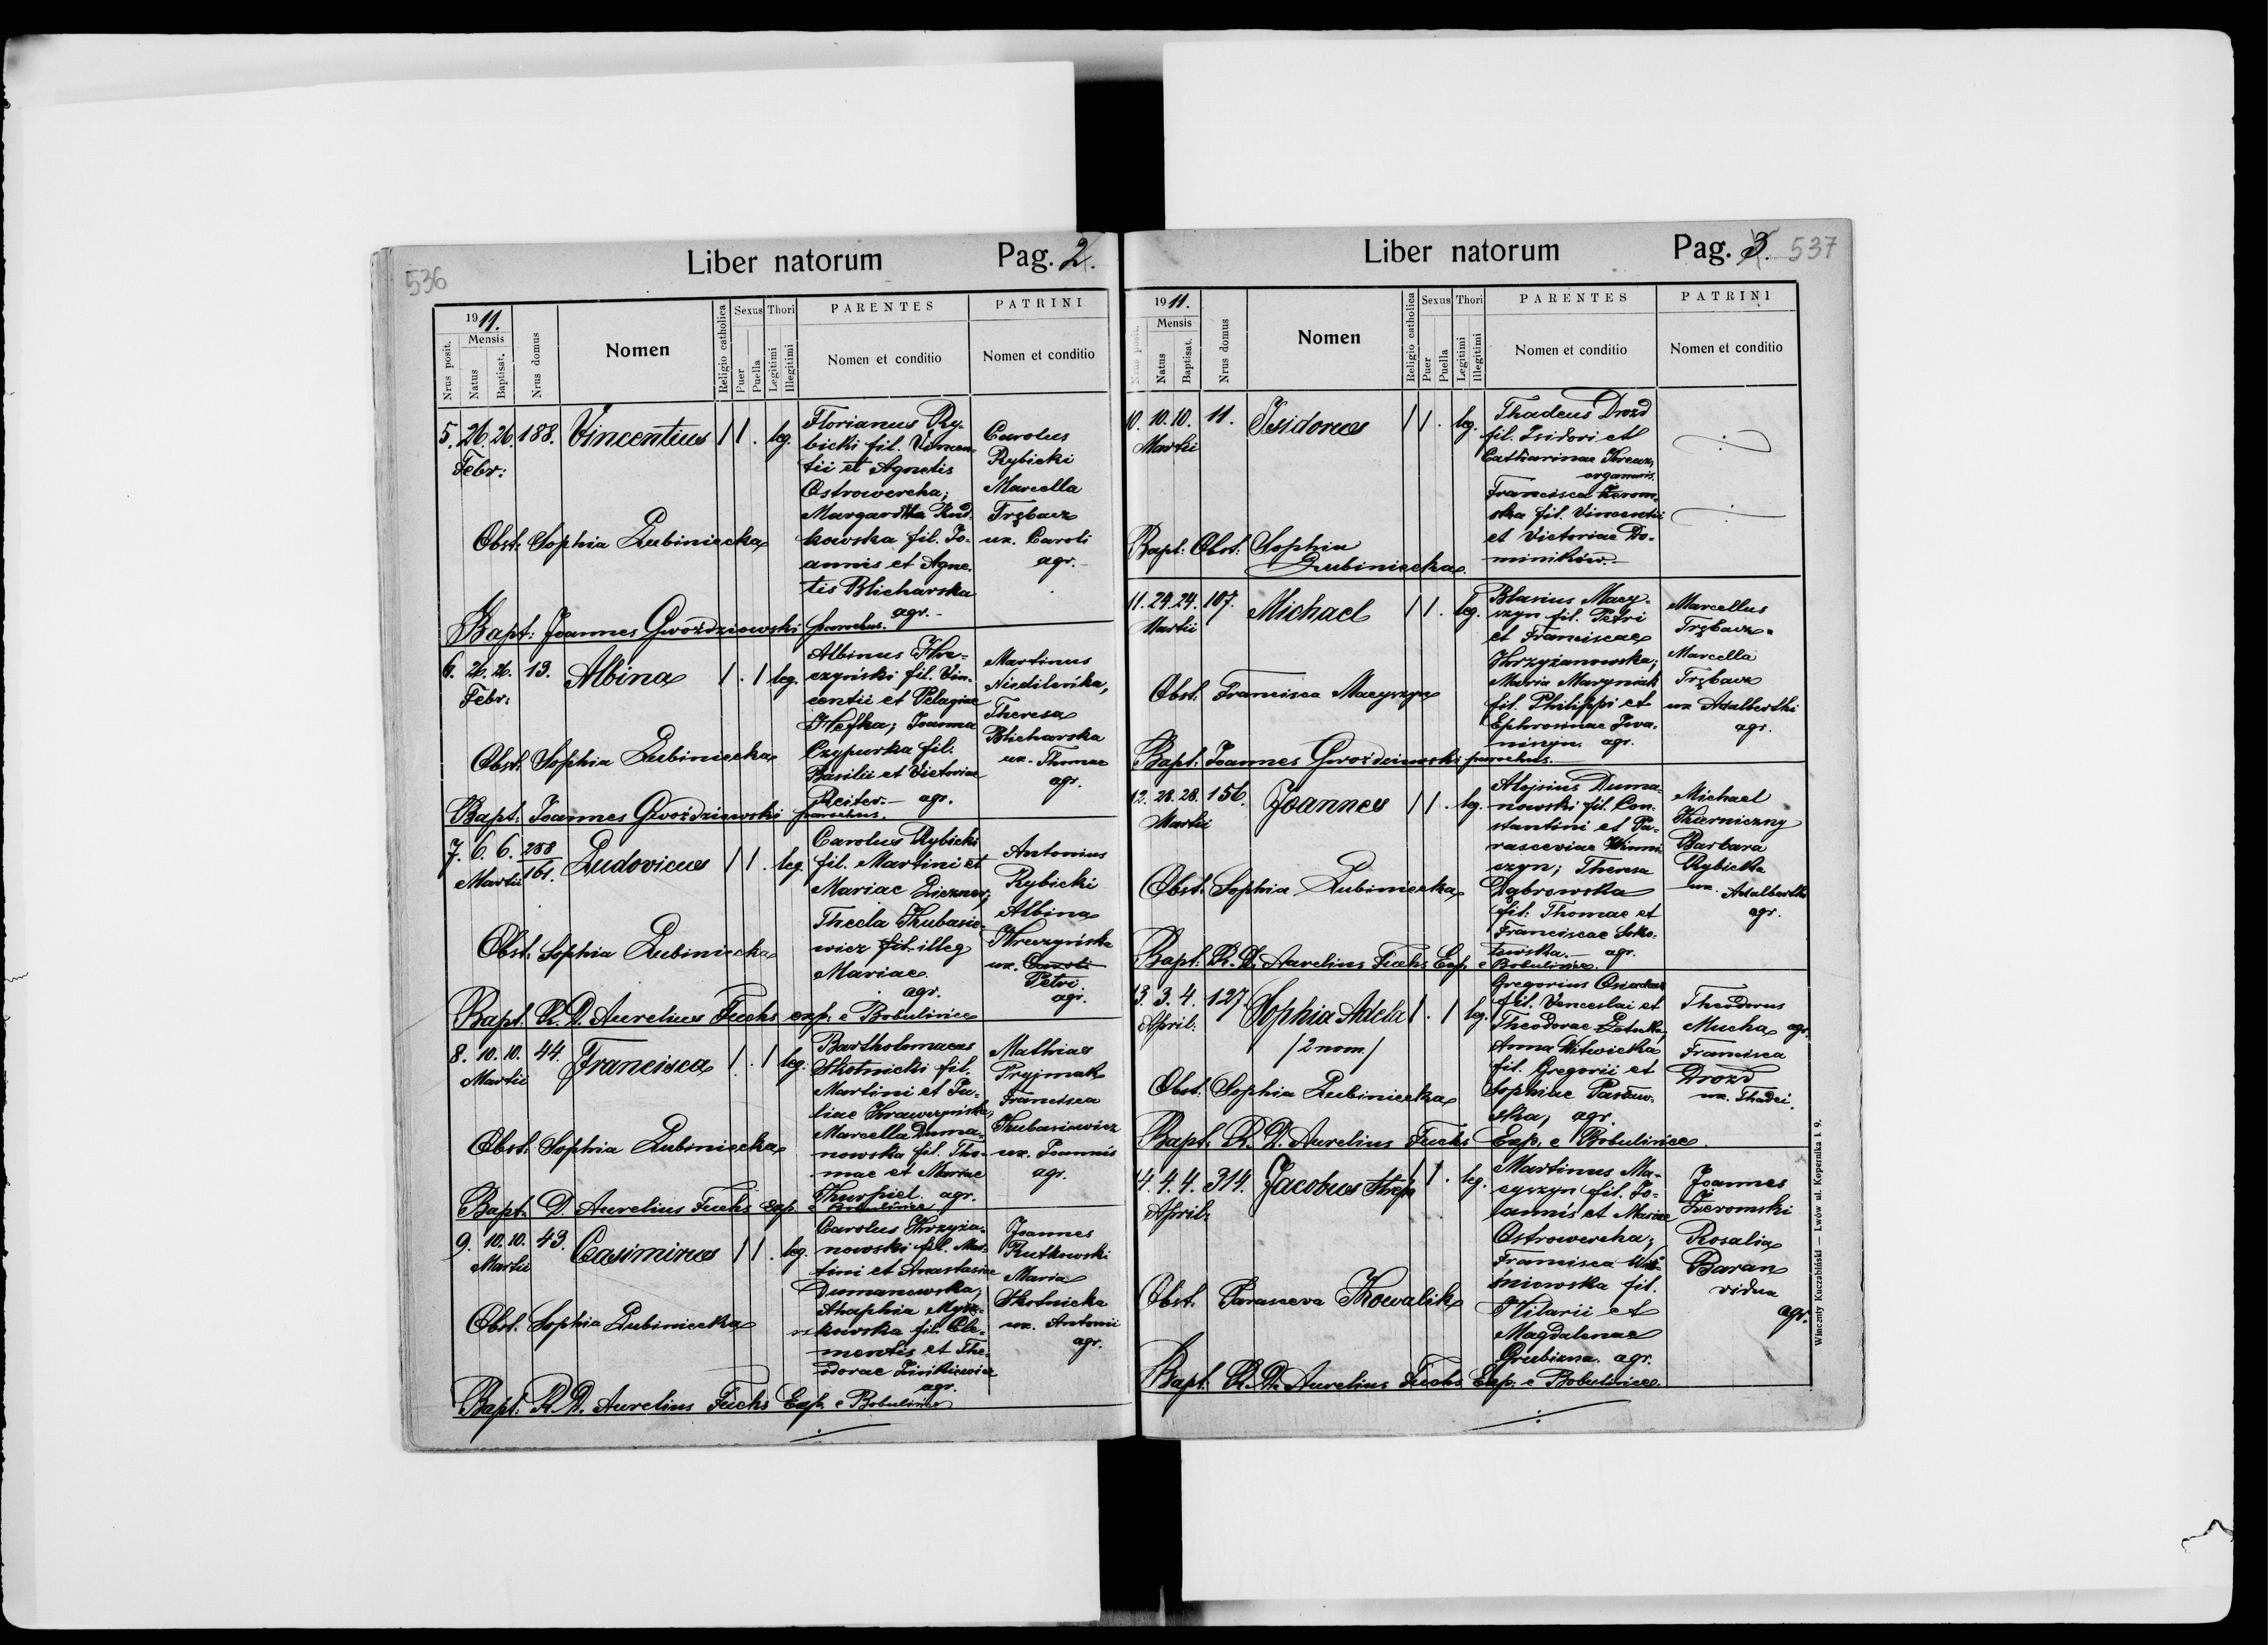 536
Liber natorum Pag. 2.
Nrus posit.
1911.
Mensis
Natus
Baptisat.
Nrus domus
Nomen
Religio catholica
Sexus
Puer
Puella
Thori
Legitimi
Illegitimi
PARENTES
Nomen et conditio
PATRINI
Nomen et conditio
5. 26. 26. 188. Vincentius 1 1 . leg.
Febr:
Florianus Ry-
bicki fil. Vincen-
tii et Agnetis
Ostrowercha;
Margaritha Rud-
kowska fil. Jo-
annis et Agne-
tis Blicharska
agr.-
Carolus
Rybicki
Marcella
Trębacz
ux. Caroli
agr.-
Obst: Sophia Lubiniecka
Bapt: Joannes Gwoździowski parochus.
6. 26. 26. 13. Albina 1 . 1 leg.
Febr:
Albinus Kre-
czyński fil. Vin-
centii et Pelagiae
Hefka; Joanna
Czypurka fil.
Basilii et Victoriae
Reiter.- agr.
Martinus
Theresa
Blicharska
ux. Thomae
agr.
Obst: Sophia Lubiniecka
Bapt: Joannes Gwoździowski parochus.
7. 6. 6. 288/161. Ludovicus 1 1 . leg.
Martii
Carolus Rybicki
fil. Martini et
Mariae Liczner;
Thecla Kubasie-
wicz fil. illeg
Mariae.
agr.
Antonius
Rybicki
Albina
Kreczyńska
ux. Caroli
Petri.
agr.
Obst: Sophia Lubiniecka
Bapt: R. D. Aurelius Fuchs exp: e Bobulince
8. 10. 10. 44. Francisca 1 . 1 leg.
Martii
Bartholomaeus
Skotnicki fil.
Martini et Ju-
liae Krawczyńska,
Marcella Duma-
nowska fil. Tho-
mae et Mariae
Kurpiel. agr.
Mathias
Pryjmak
Francisca
Kubasiewicz
ux. Joannis
agr.
Obst: Sophia Lubiniecka
Bapt: D. Aurelius Fuchs Exp. e Bobulince
9. 10. 10. 43. Casimirus 1 1 . leg.
Martii
Carolus Krzyża-
nowski fil. Mar-
tini et Anastasiae
Dumanowska;
Ahaphia Mysz-
kowska fil. Cle-
mentis et The-
odorae
agr.
Joannes
Rutkowski
Maria
Skotnicka
ux. Antonii
agr.
Obst. Sophia Lubiniecka
Bapt: R. D. Aurelius Fuchs Exp. e Bobulince
Liber natorum Pag. 3. 537
Nrus posit.
1911.
Mensis
Natus
Baptisat.
Nrus domus
Nomen
Religio catholica
Sexus
Puer
Puella
Thori
Legitimi
Illegitimi
PARENTES
Nomen et conditio
PATRINI
Nomen et conditio
10. 10. 10. 11. Isidorus 1 1 . leg.
Martii
Thadeus Drozd
fil. Isidori et
Catharinae
Francisca Żerom-
ska fil. Vincentii
et Victoriae Do-
miników.-
Bapt: Obst: Sophia
Lubiniecka.
11. 24. 24. 107. Michael 1 1 . leg.
Martii
Blasius Macy-
szyn fil. Petri
et Franciscae
Krzyżanowska;
Maria Maryniak
fil. Philippi et
Ephrosinae Iwa-
niszyn. agr.
Marcellus
Trębacz.
Marcella
Trębacz
ux Adalberthi
agr.
Obst. Francisca Macyszyn
Bapt: Joannes Gwoździowski parochus.
12. 28. 28. 156. Joannes 1 1 . leg.
Martii
Alojsius Duma-
nowski fil. Con-
stantini et Pa-
rasceviae Winni-
czyn; Theresa
Dąbrowska
fil: Thomae et
Franciscae Soko-
łowska.- agr.
Michael
Karniczny
Barbara
Rybicka
ux. Adalberthi
agr.
Obst: Sophia Lubiniecka
Bapt: R. D. Aurelius Fuchs Exp. e Bobulince.
13. 3. 4. 127. Sophia Adela 1 . 1 leg.
April: /2 nom./
Gregorius
fil. Venceslai et
Theodorae
Anna Witwicka
fil. Gregorii et
Sophiae
agr.
Theodorus
Mucha agr.
Francisca
Drozd
ux. Thadei.
Obst: Sophia Lubiniecka
Bapt: R. D. Aurelius Fuchs Exp. e Bobulince.
14. 4. 4. 314. Jacobus 1 . leg.
April:
Martinus Ma-
cyszyn fil. Jo-
annis et Mariae
Ostrowercha;
Francisca Wiś-
niowska fil.
Hilarii et
Magdalenae
Grubizna. agr.
Joannes
Żeromski
Rosalia
Baran
vidua
agr.
Obst. Parasceva Kowalik
Bapt: R. D. Aurelius Fuchs Exp. e Bobulince.
Winczenty Kuczabiński — Lwów ul. Kopernika l. 9.